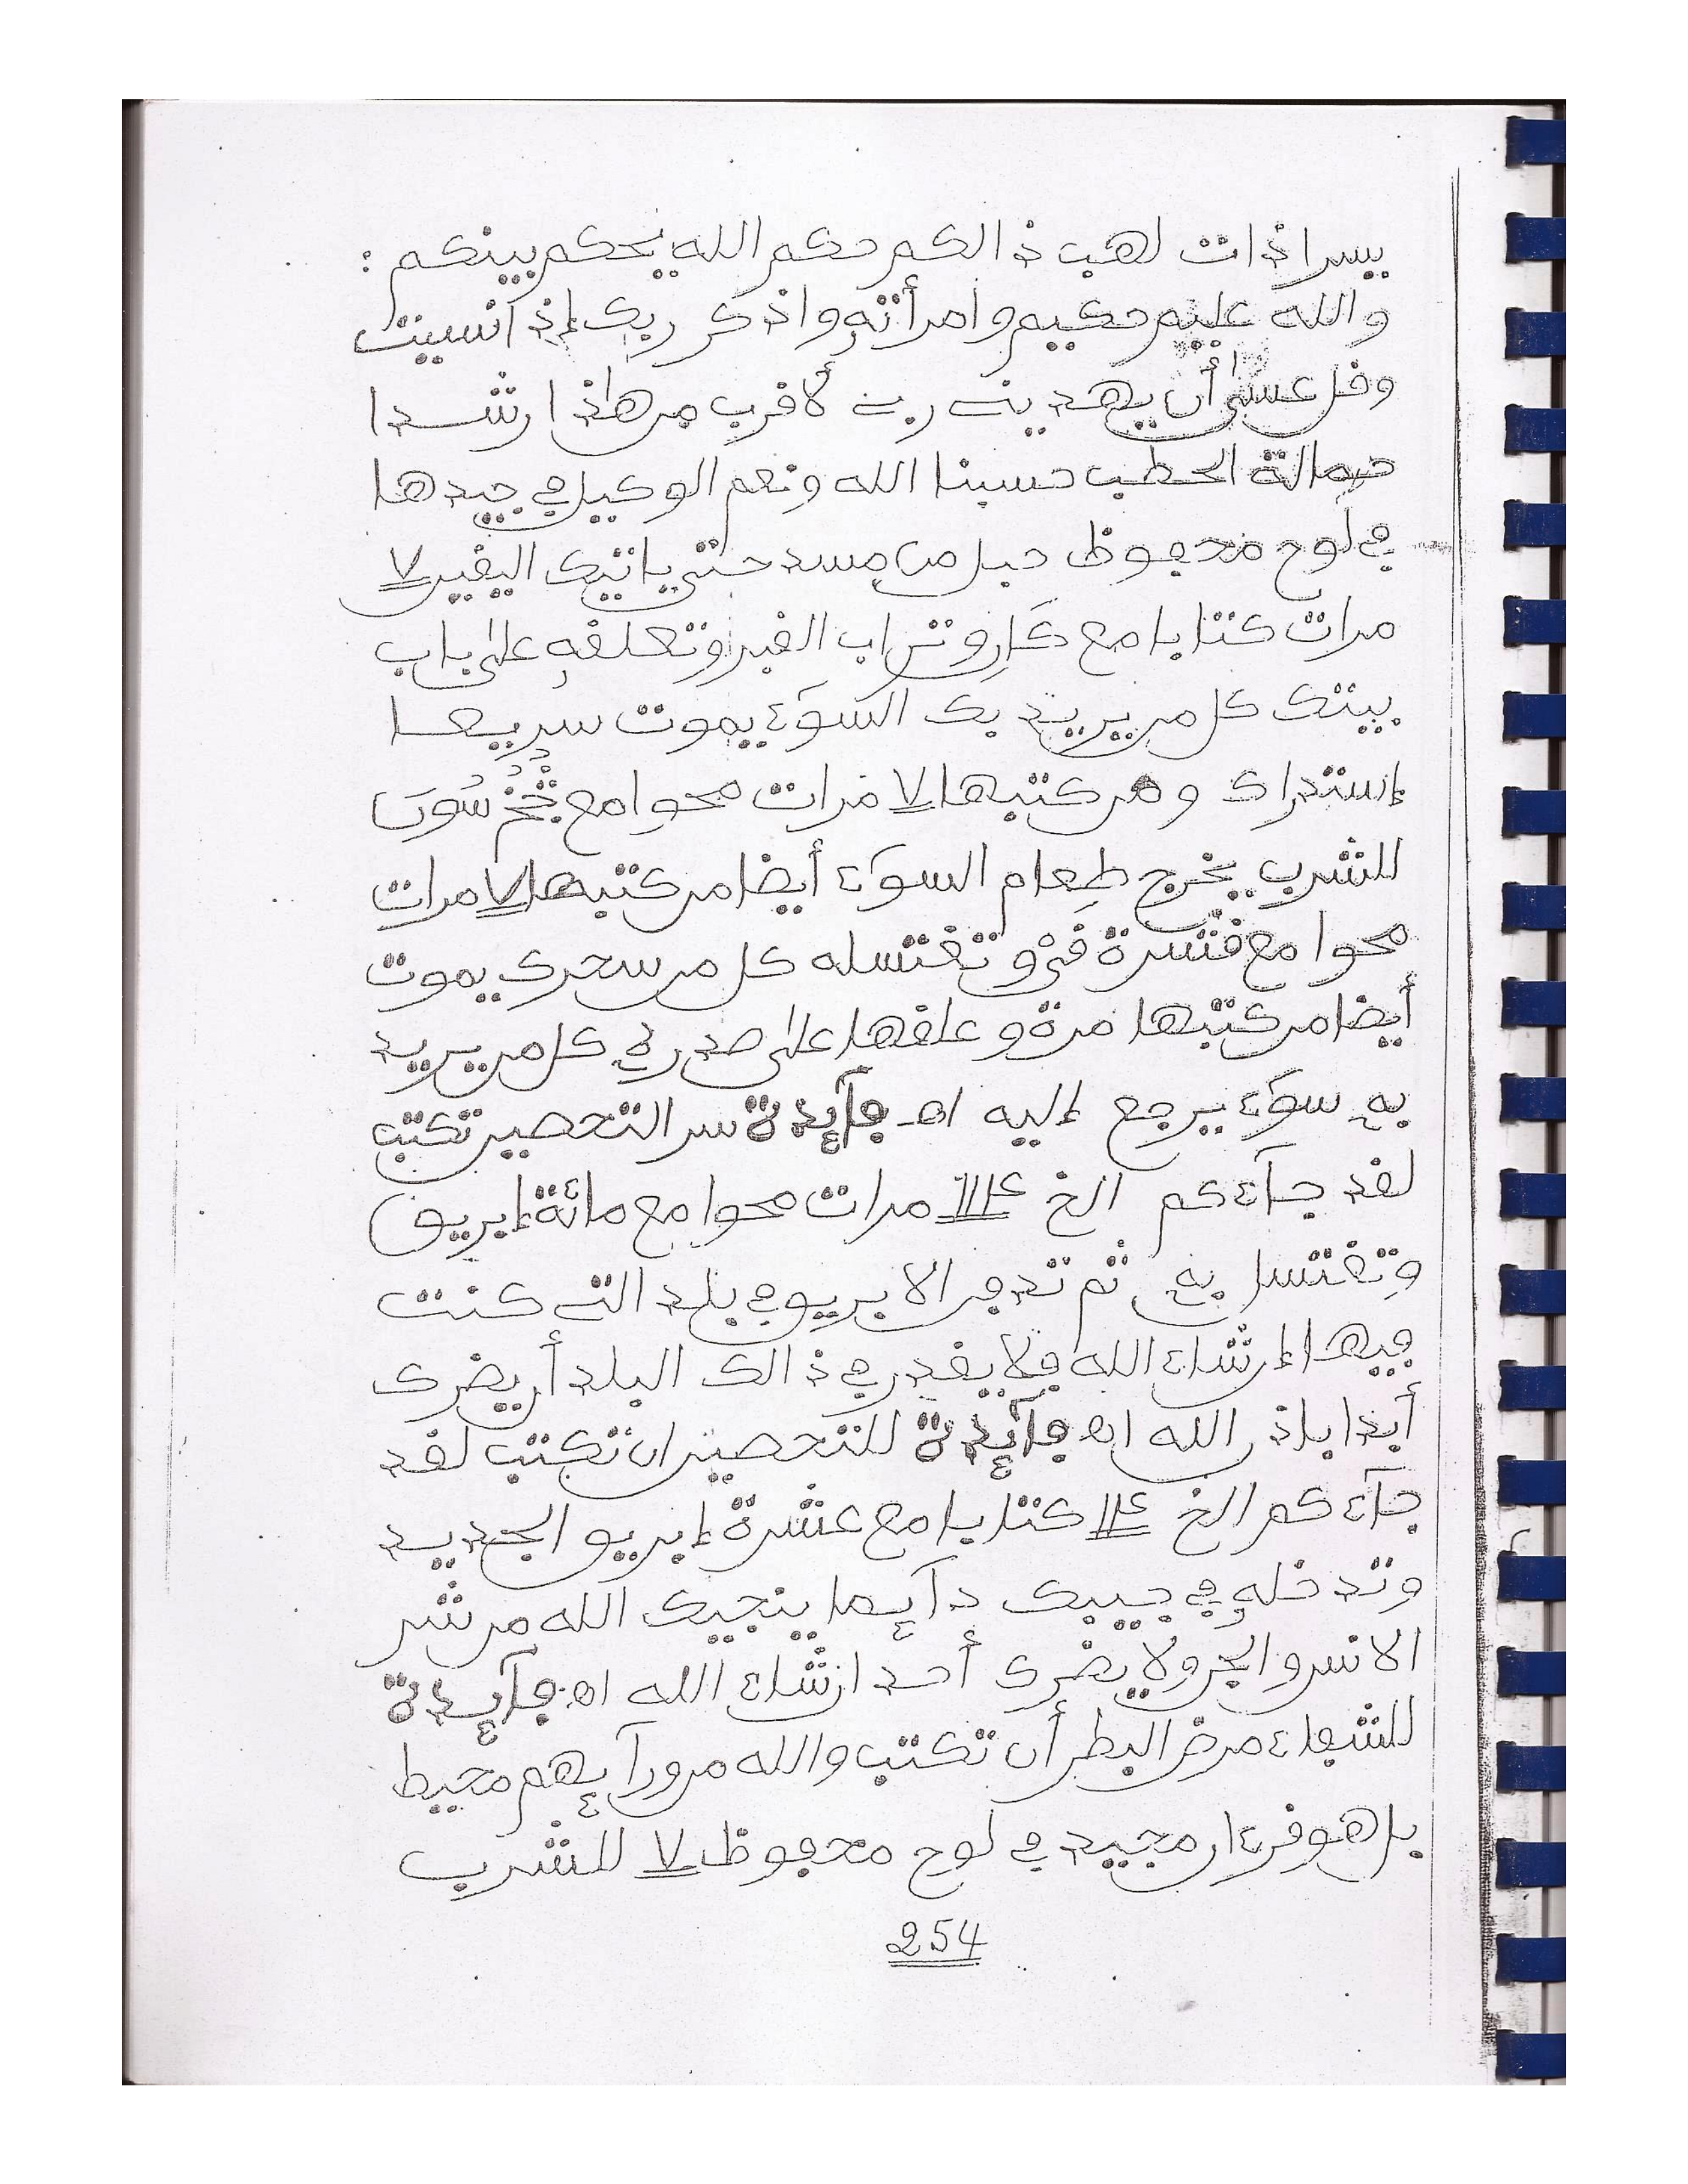 يسرا ذات لهب ذالكم حكم الله يحكم بينكم :
والله عليم حكيم وامرأته واذكر ربك إذا نسيت
وقل عسى أن يهدين رب لأقرب من هاذا رشدا
حمالة الحطب حسبنا الله ونعم الوكيل في جيدها
في لوح محفوظ حبل من مسد حتى ياتيك اليقين ٧
مرات كتابا مع وتراب القبر وتعلقه على باب
بيتك كل من يريد بك السوٓء يموت سريعا
إستدراك ومن كتبها ٧ مرات محوا مع
للشرب يخرج طعام السوٓء أيضا من كتبها ٧ مرات
محوا مع قشرة وتغتسله كل من سحرك يموت
أيضا من كتبها مرة وعلقها على صدره كل من يريد
به سوٓء يرجع إليه اه فآئدة سر التحصين تكتب
لقد جآءكم الخ مرات محوا مع مائة إبريق
وتغتسل به ثم تدفن الابريق في بلد الت كنت
فيها إن شاء الله فلا يقدر في ذالك البلد أن يضرك
أبدا باذن الله اه فآئدة للتحصين ان تكتب لقد
جآءكم الخ كتابا مع عشرة إبريق الجديد
وتدخله في جيبك دآئما ينجيك الله من شر
الانس والجن ولا يضرك أحد ان شاء الله اه فآئدة
للشفاء مرض البطن أن تكتب والله من ورآئهم محيط
بل هو قرءان مجيد في لوح محفوظ ٧ للشرب
254